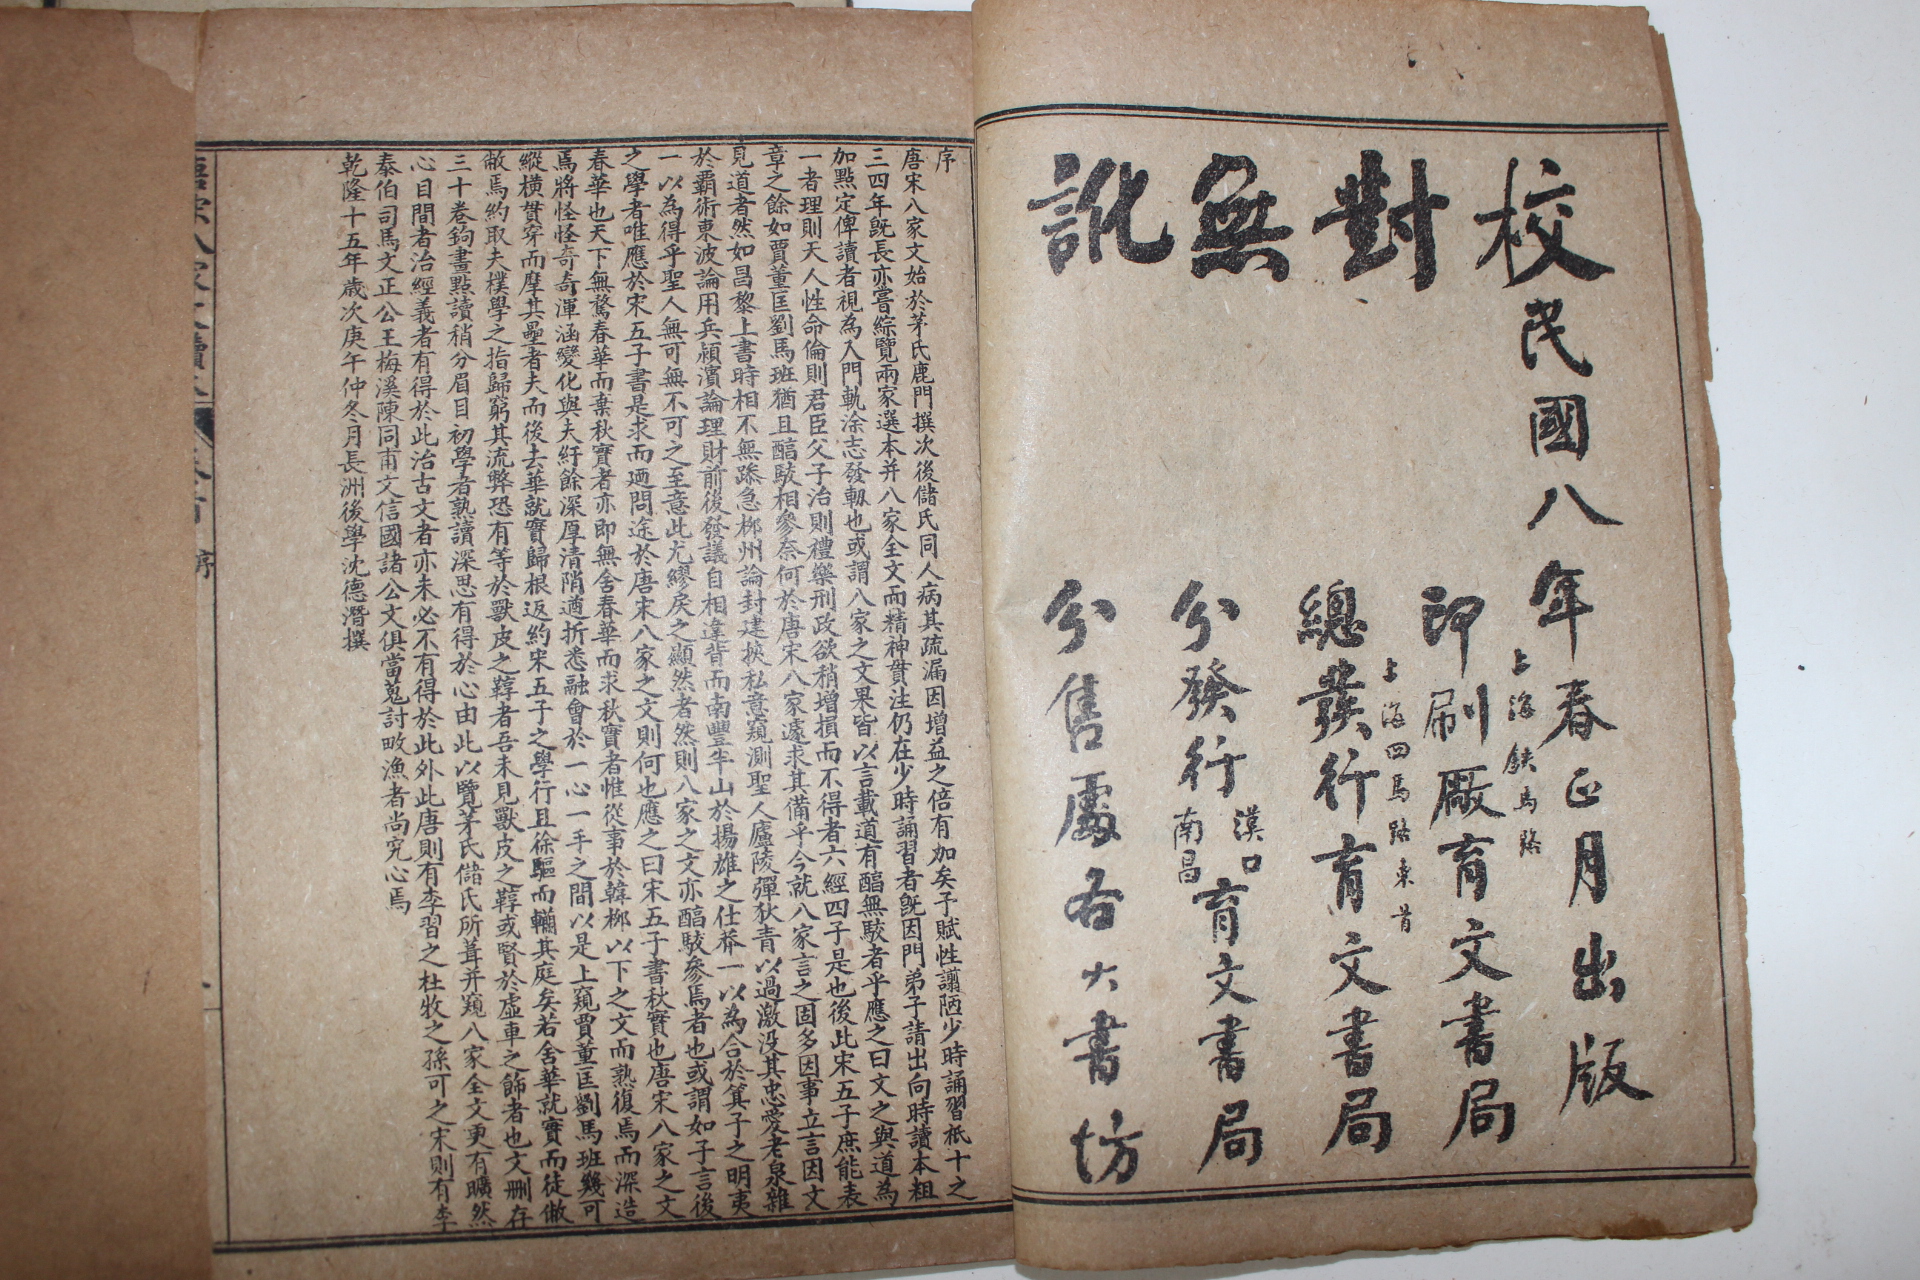 校對無訛
民國八年春正月出版
上海鉄馬路
印刷廠育文書局
上海四馬路東首
總發行育文書局
漢口
南昌
分發行育文書局
分售處各大書坊
序
唐宋八家文始於茅氏鹿門撰次後儲氏同人病其疏漏因增益之倍有加矣予賦性謭陋少時誦習祇十之
三四年旣長亦嘗綜覽兩家選本并八家全文而精神貫注仍在少時誦習者旣因門弟子請出向時讀本粗
加點定俾讀者視為入門軌涂志發軔也或謂八家之文果皆以言載道有醕無駁者乎應之曰文之與道為
一者理則天人性命倫則君臣父子治則禮樂刑政欲稍增損而不得者六經四子是也後此宋五子庶能表
章之餘如賈董匡劉馬班猶且醕駁相參奈何於唐宋八家遽求其備乎今就八家言之固多因事立言因文
見道者然如昌黎上書時相不無躁急柳州論封建挾私意窺測聖人廬陵彈狄青以過激沒其忠愛老泉雜
於霸術東坡論用兵潁濱論理財前後發議自相違背而南豐半山於揚雄之仕莽一以為合於箕子之明夷
一以為得乎聖人無可無不可之至意此尤繆戾之顯然者然則八家之文亦醕駁參焉者也或謂如子言後
之學者唯應於宋五子書是求而廼問途於唐宋八家之文則何也應之曰宋五子書秋實也唐宋八家之文
春華也天下無騖春華而棄秋實者亦即無舍春華而求秋實者惟從事於韓柳以下之文而熟復焉而深造
焉將怪怪奇奇渾涵變化與夫紆餘深厚清陗遒折悉融會於一心一手之間以是上窺賈董匡劉馬班幾可
縱橫貫穿而摩其壘者夫而後去華就實歸根返約宋五子之學行且徐驅而轥其庭矣若舍華就實而徒倣
敝焉約取夫樸學之指歸窮其流弊恐有等於獸皮之鞟者吾未見獸皮之鞟或賢於虛車之飾者也文刪存
三十卷鉤畫點讀稍分眉目初學者熟讀深思有得於心由此以覽茅氏儲氏所葺并窺八家全文更有曠然
心目間者治經義者有得於此治古文者亦未必不有得於此外此唐則有李習之杜牧之孫可之宋則有李
泰伯司馬文正公王梅溪陳同甫文信國諸公文俱當蒐討畋漁者尚究心焉
乾隆十五年歲次庚午仲冬月長洲後學沈德潛撰
序